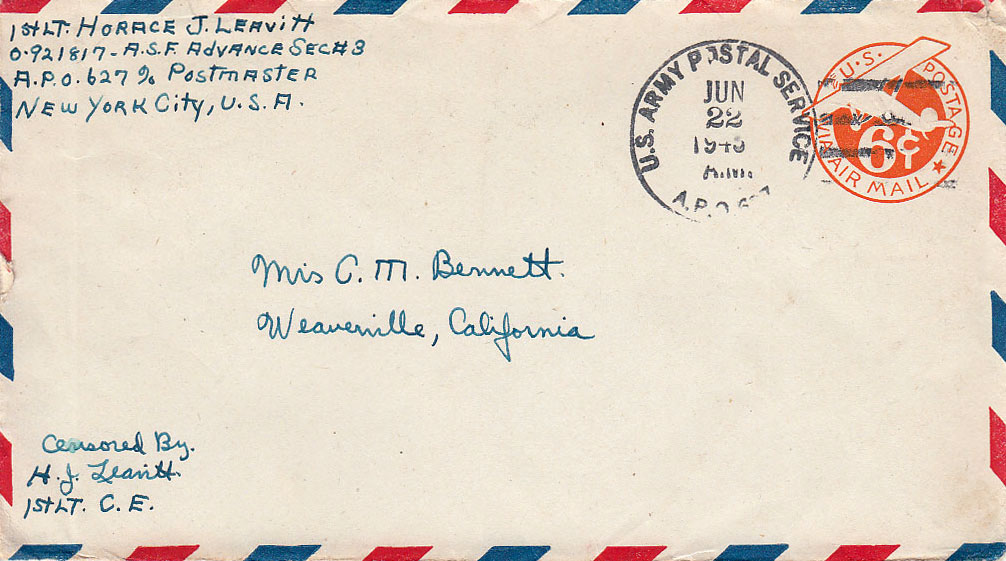 1st LT. HORACE J. LEAVITT
O-921817 - A.S.F. ADVANCE SEC #3
A.P.O. 627 % POSTMASTER
NEW YORK CITY, U.S.A.
U.S. ARMY POSTAL SERVICE
JUN
22
A.M.
A.P.O.
U.S. POSTAGE
6¢
VIA AIR MAIL
Mrs C. M. Bennett.
Weaverville, California
Censored By.
H. J. Leavitt.
1st LT. C. E.